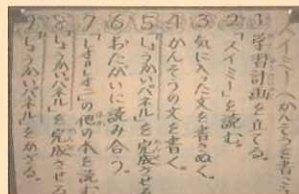 スイミー(かんそうを書こう
① 学習計画を立てる。
② 「スイミー」を読む。
③ 気に入った文を書きぬく。
④ かんそうの文を書く。
⑤ 「しょうかいパネル」を完成させる
⑥ おたがいに読み合う。
⑦ の他の本を読む
⑧ 「しょうかいパネル」を完成させる
⑨ 「しょうかいパネル」をかざる。